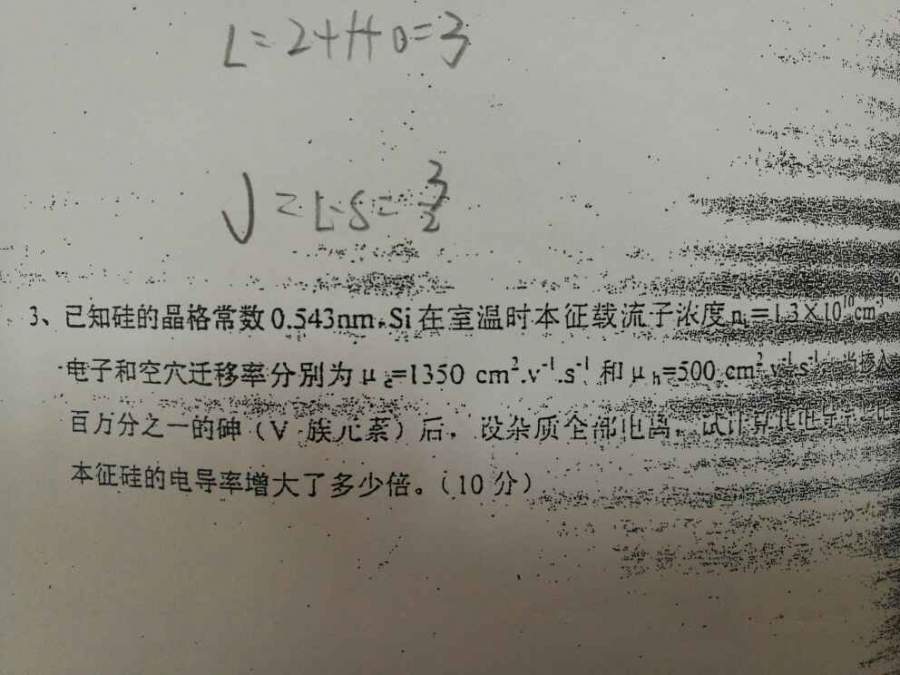 L=2+1+0=3
J=L-S=3/2
3、已知硅的晶格常数0.543nm,Si在室温时本征载流子浓度nᵢ=1.3×10¹⁰cm
电子和空穴迁移率分别为μₑ=1350 cm².v⁻¹.s⁻¹ 和μₕ=500 cm².v⁻¹.s⁻¹ 当掺入
百万分之一的砷(V 族元素)后，设杂质全部电离，试计算其电导率
本征硅的电导率增大了多少倍。(10分)